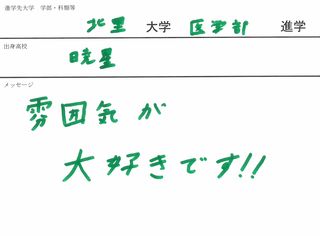 進学先大学 学部・科類等
北里 大学 医学部 進学
出身高校
暁星
メッセージ
雰囲気が
大好きです!!